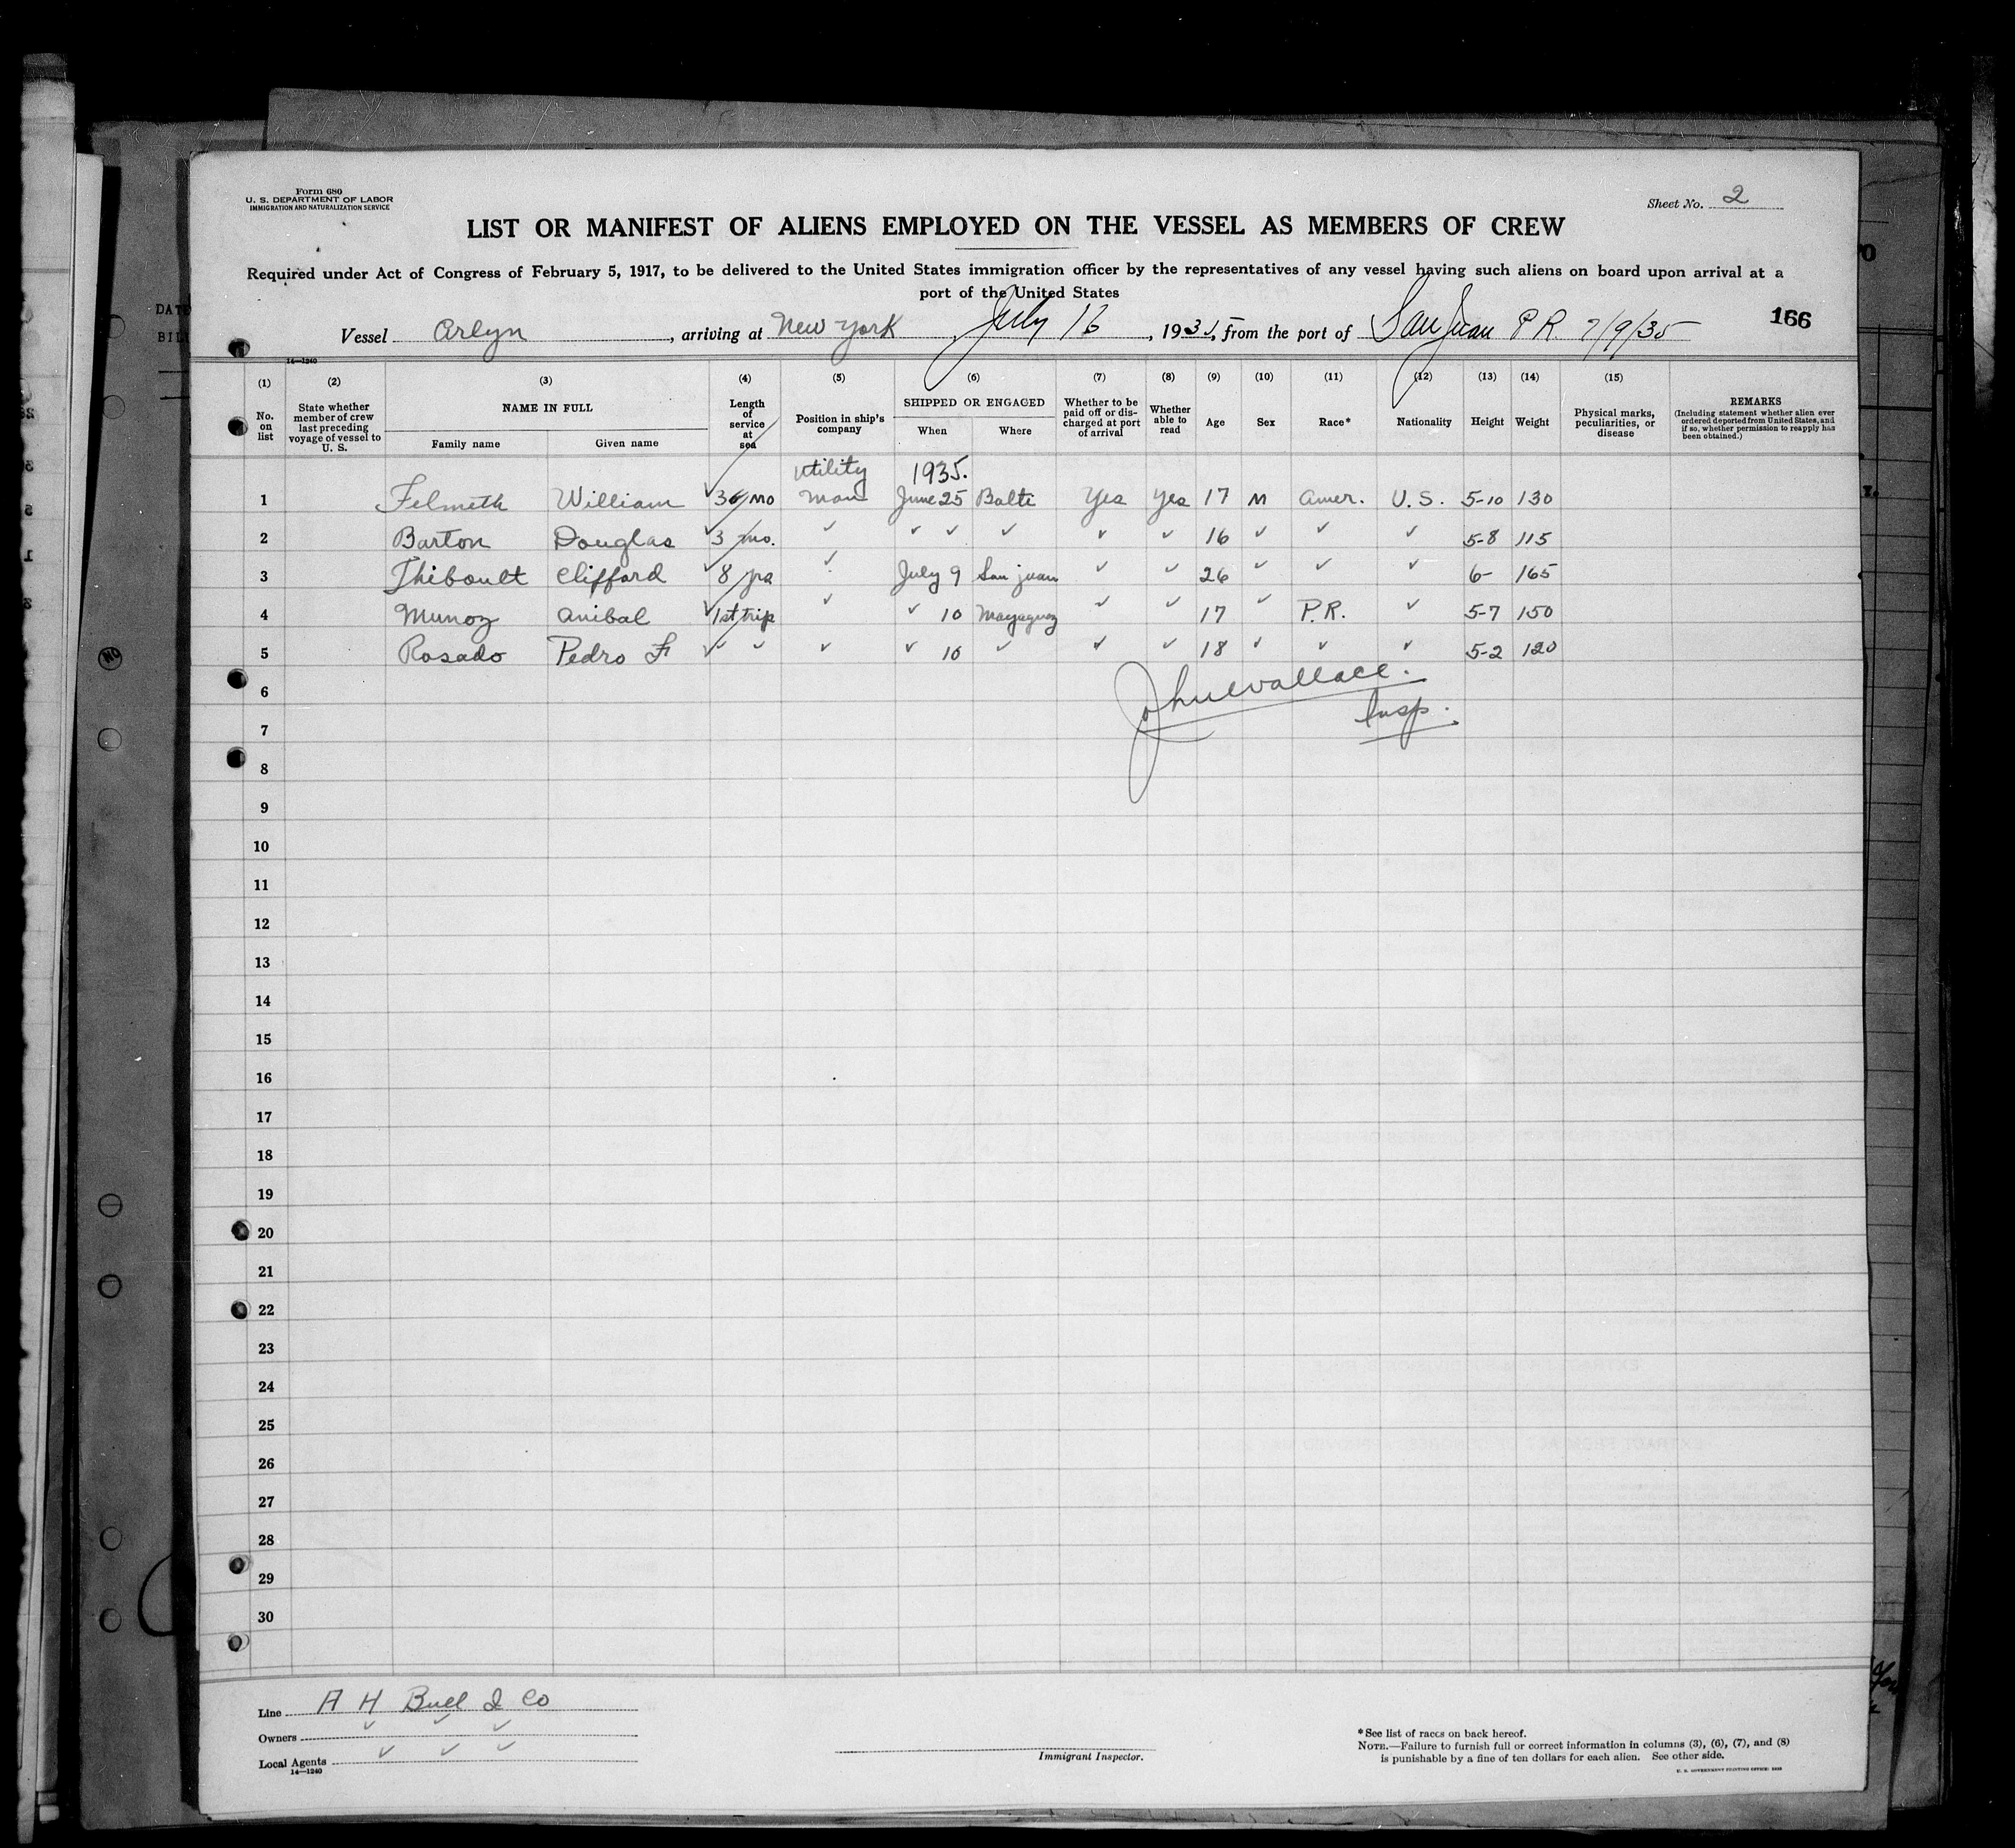 Form 680
U. S. DEPARTMENT OF LABOR
IMMIGRATION AND NATURALIZATION SERVICE
Sheet No. 2
LIST OR MANIFEST OF ALIENS EMPLOYED ON THE VESSEL AS MEMBERS OF CREW
Required under Act of Congress of February 5, 1917, to be delivered to the United States immigration officer by the representatives of any vessel having such aliens on board upon arrival at a
port of the United States
166
Vessel Arlyn, arriving at New York, July 16, 1935, from the port of San Juan P R. 7/9/35
14—1240
(1) (2) (3) (4) (5) (6) (7) (8) (9) (10) (11) (12) (13) (14) (15)
No. on list
State whether member of crew last preceding voyage of vessel to U. S.
NAME IN FULL
Family name Given name
Length of service at sea
Position in ship's company
SHIPPED OR ENGAGED
When Where
Whether to be paid off or discharged at port of arrival
Whether able to read
Age
Sex
Race*
Nationality
Height
Weight
Physical marks, peculiarities, or disease
REMARKS
(Including statement whether alien ever ordered deported from United States, and if so, whether permission to reapply has been obtained.)
utility 1935.
1 Felmeth William ✓ mo man June 25 Balto Yes Yes 17 M Amer. U.S. 5-10 130
2 Barton Douglas ✓ 3 mo. ✓ ✓ ✓ ✓ ✓ ✓ 16 ✓ ✓ ✓ 5-8 115
3 Thiboult Clifford ✓ 8 yrs ✓ July 9 San Juan ✓ ✓ 26 ✓ ✓ ✓ 6- 165
4 Munoz Anibal ✓ 1st trip ✓ ✓ 10 Mayaguez ✓ ✓ 17 ✓ P.R. ✓ 5-7 150
5 Rosado Pedro F ✓ ✓ ✓ ✓ ✓ 10 ✓ ✓ ✓ 18 ✓ ✓ ✓ 5-2 120
John Wallace.
6
Insp.
7
8
9
10
11
12
13
14
15
16
17
18
19
20
21
22
23
24
25
26
27
28
29
30
Line A H Bull & Co
Owners ✓ ✓ ✓
Local Agents ✓ ✓ ✓
14—1240
Immigrant Inspector.
*See list of races on back hereof.
NOTE.—Failure to furnish full or correct information in columns (3), (6), (7), and (8)
is punishable by a fine of ten dollars for each alien. See other side.